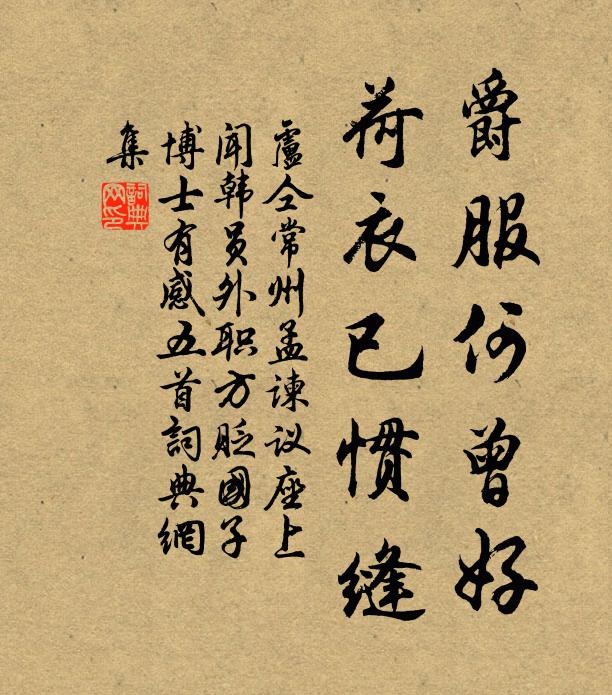 爵服何曾好
荷衣已惯缝
盧仝常州孟谏议座上
闻韩员外职方貶國子
博士有感五首詞典網
集
詞典网印